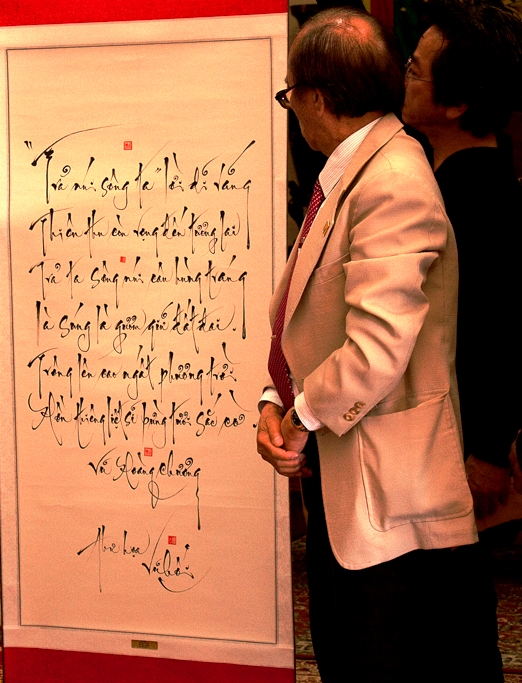 "Trả núi sông ta" lời dĩ vãng
Thiên thu còn vọng đến tương lai
Trả ta sông núi câu hùng tráng
Là súng là gươm giữ đất đai.
Trông lên cao ngất phương trời
Hồn thiêng liệt sĩ bừng tươi sắc cờ.
Vũ Hoàng Chương
Thư họa
Vũ Hối